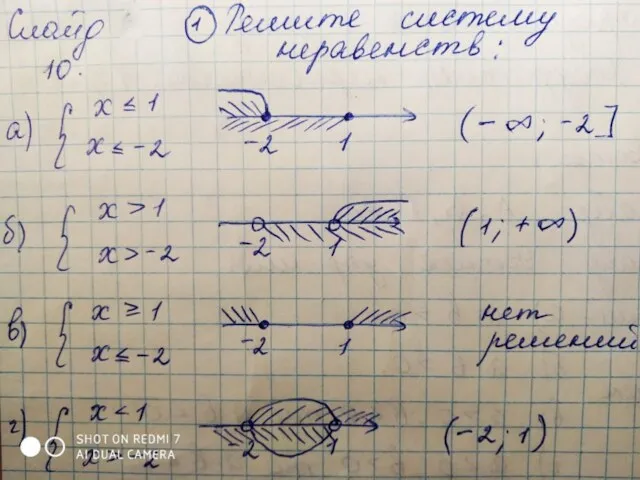 Слайд
10.
① Решите систему
неравенств:
а) { x ≤ 1
x ≤ -2
-2 1
(-∞; -2]
б) { x > 1
x > -2
-2 1
(1; +∞)
в) { x ≥ 1
x ≤ -2
-2 1
нет
решений
г) { x < 1
-2 1
(-2; 1)
SHOT ON REDMI 7
AI DUAL CAMERA